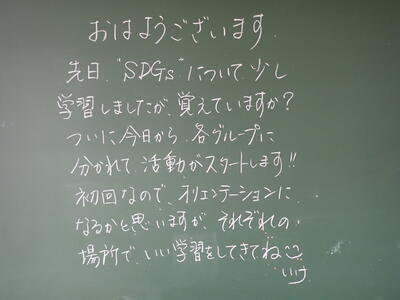 おはようございます.
先日, "SDGs" について少し
学習しましたが, 覚えていますか?
ついに今日から, 各グループに
分かれて, 活動がスタートします!!
初回なので, オリエンテーションに
なるかと思いますが, それぞれの
場所で, いい学習をしてきてね